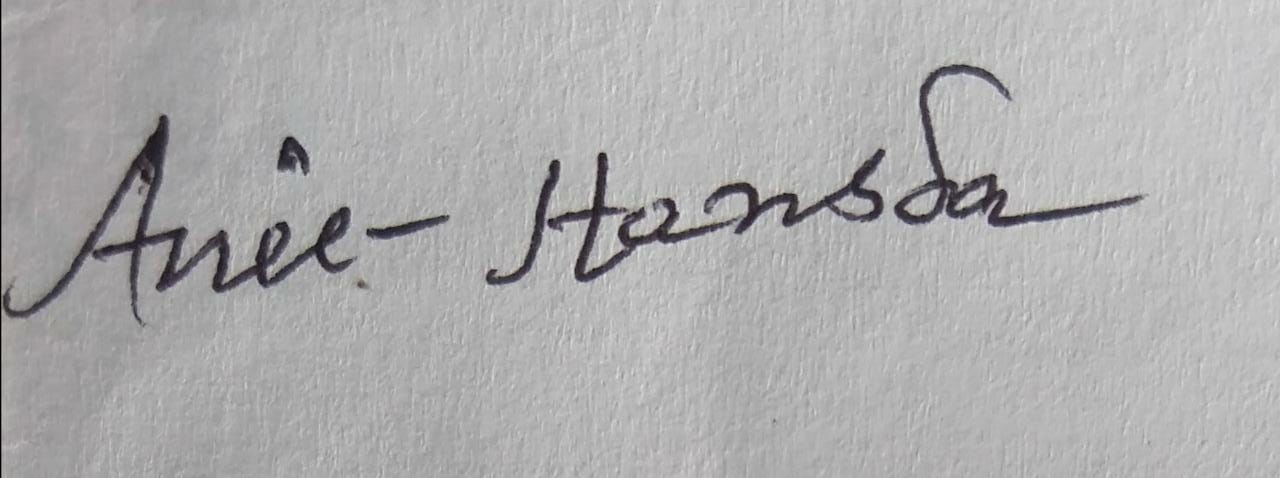 Anil Hansda